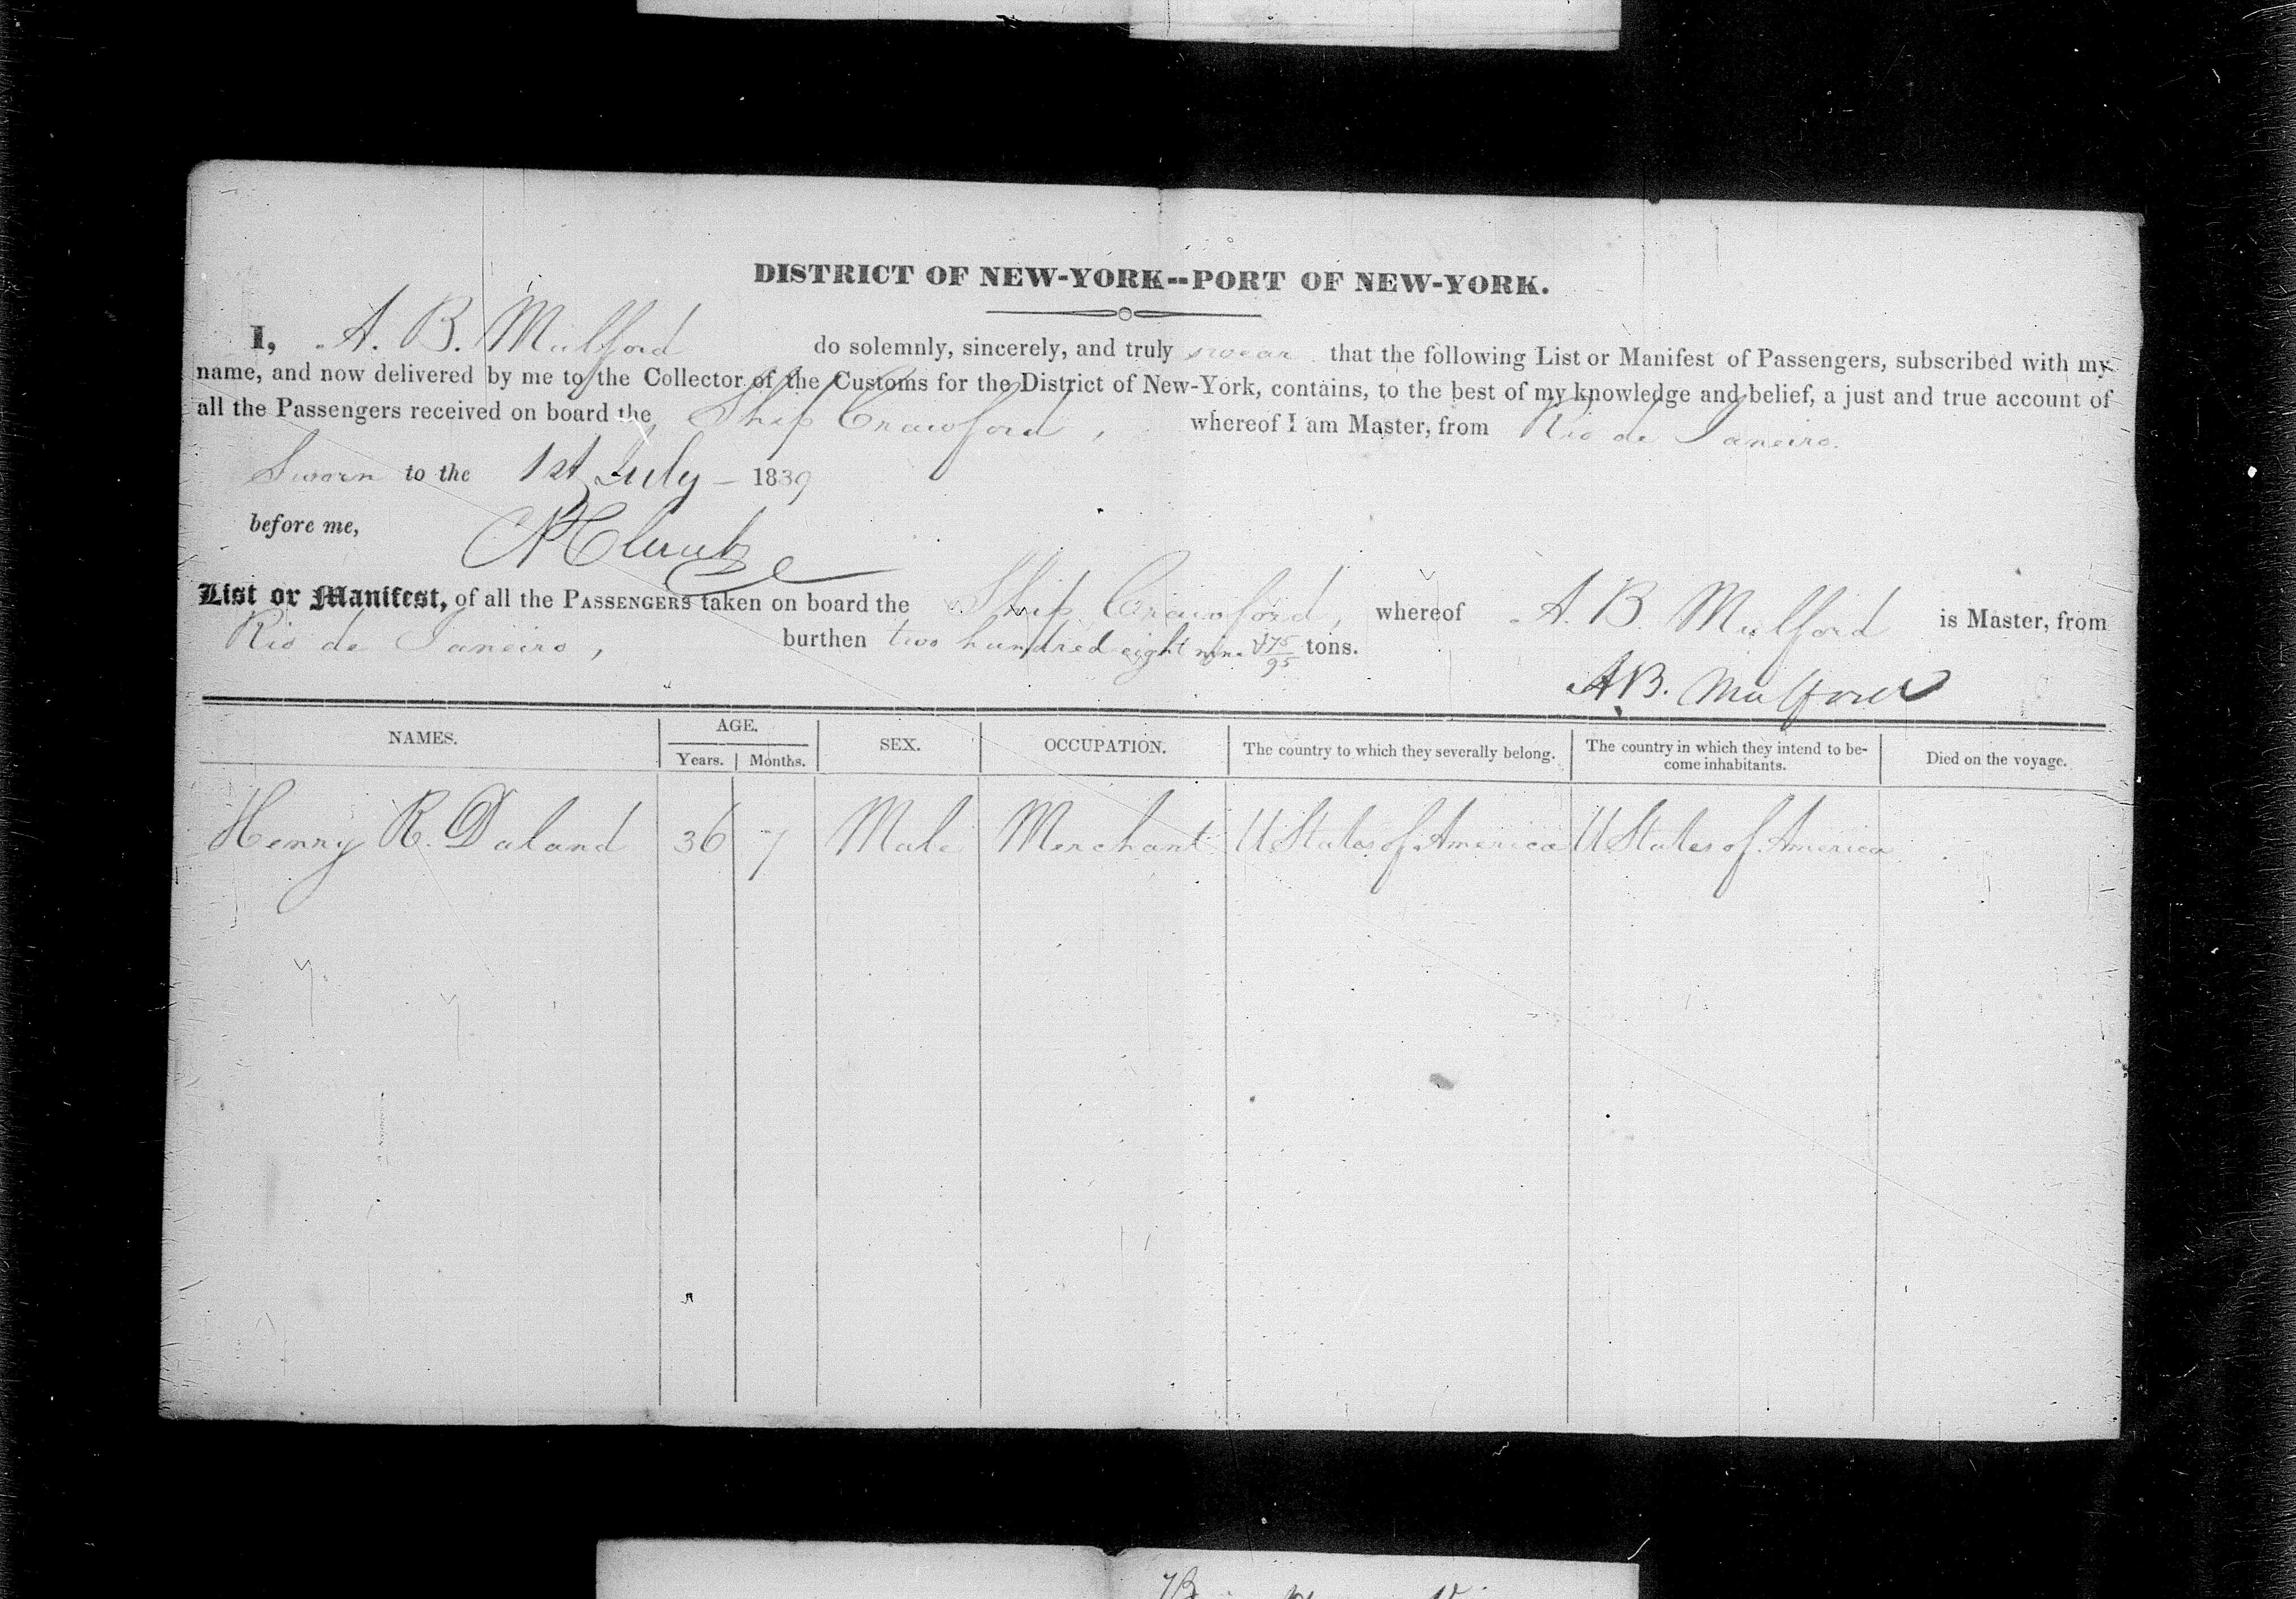 DISTRICT OF NEW-YORK--PORT OF NEW-YORK.
I, A. B. Mulford do solemnly, sincerely, and truly swear that the following List or Manifest of Passengers, subscribed with my
name, and now delivered by me to the Collector of the Customs for the District of New-York, contains, to the best of my knowledge and belief, a just and true account of
all the Passengers received on board the Ship Crawford, whereof I am Master, from Rio de Janeiro.
Sworn to the 1st July - 1839
before me,
List or Manifest, of all the PASSENGERS taken on board the Ship Crawford, whereof A. B. Mulford is Master, from
Rio de Janeiro, burthen two hundred eight nine 75/95 tons.
A B. Mulford
NAMES. AGE. SEX. OCCUPATION. The country to which they severally belong. The country in which they intend to be-
come inhabitants. Died on the voyage.
Years. Months.
Henry R. Daland 36 7 Male Merchant U States of America U States of America